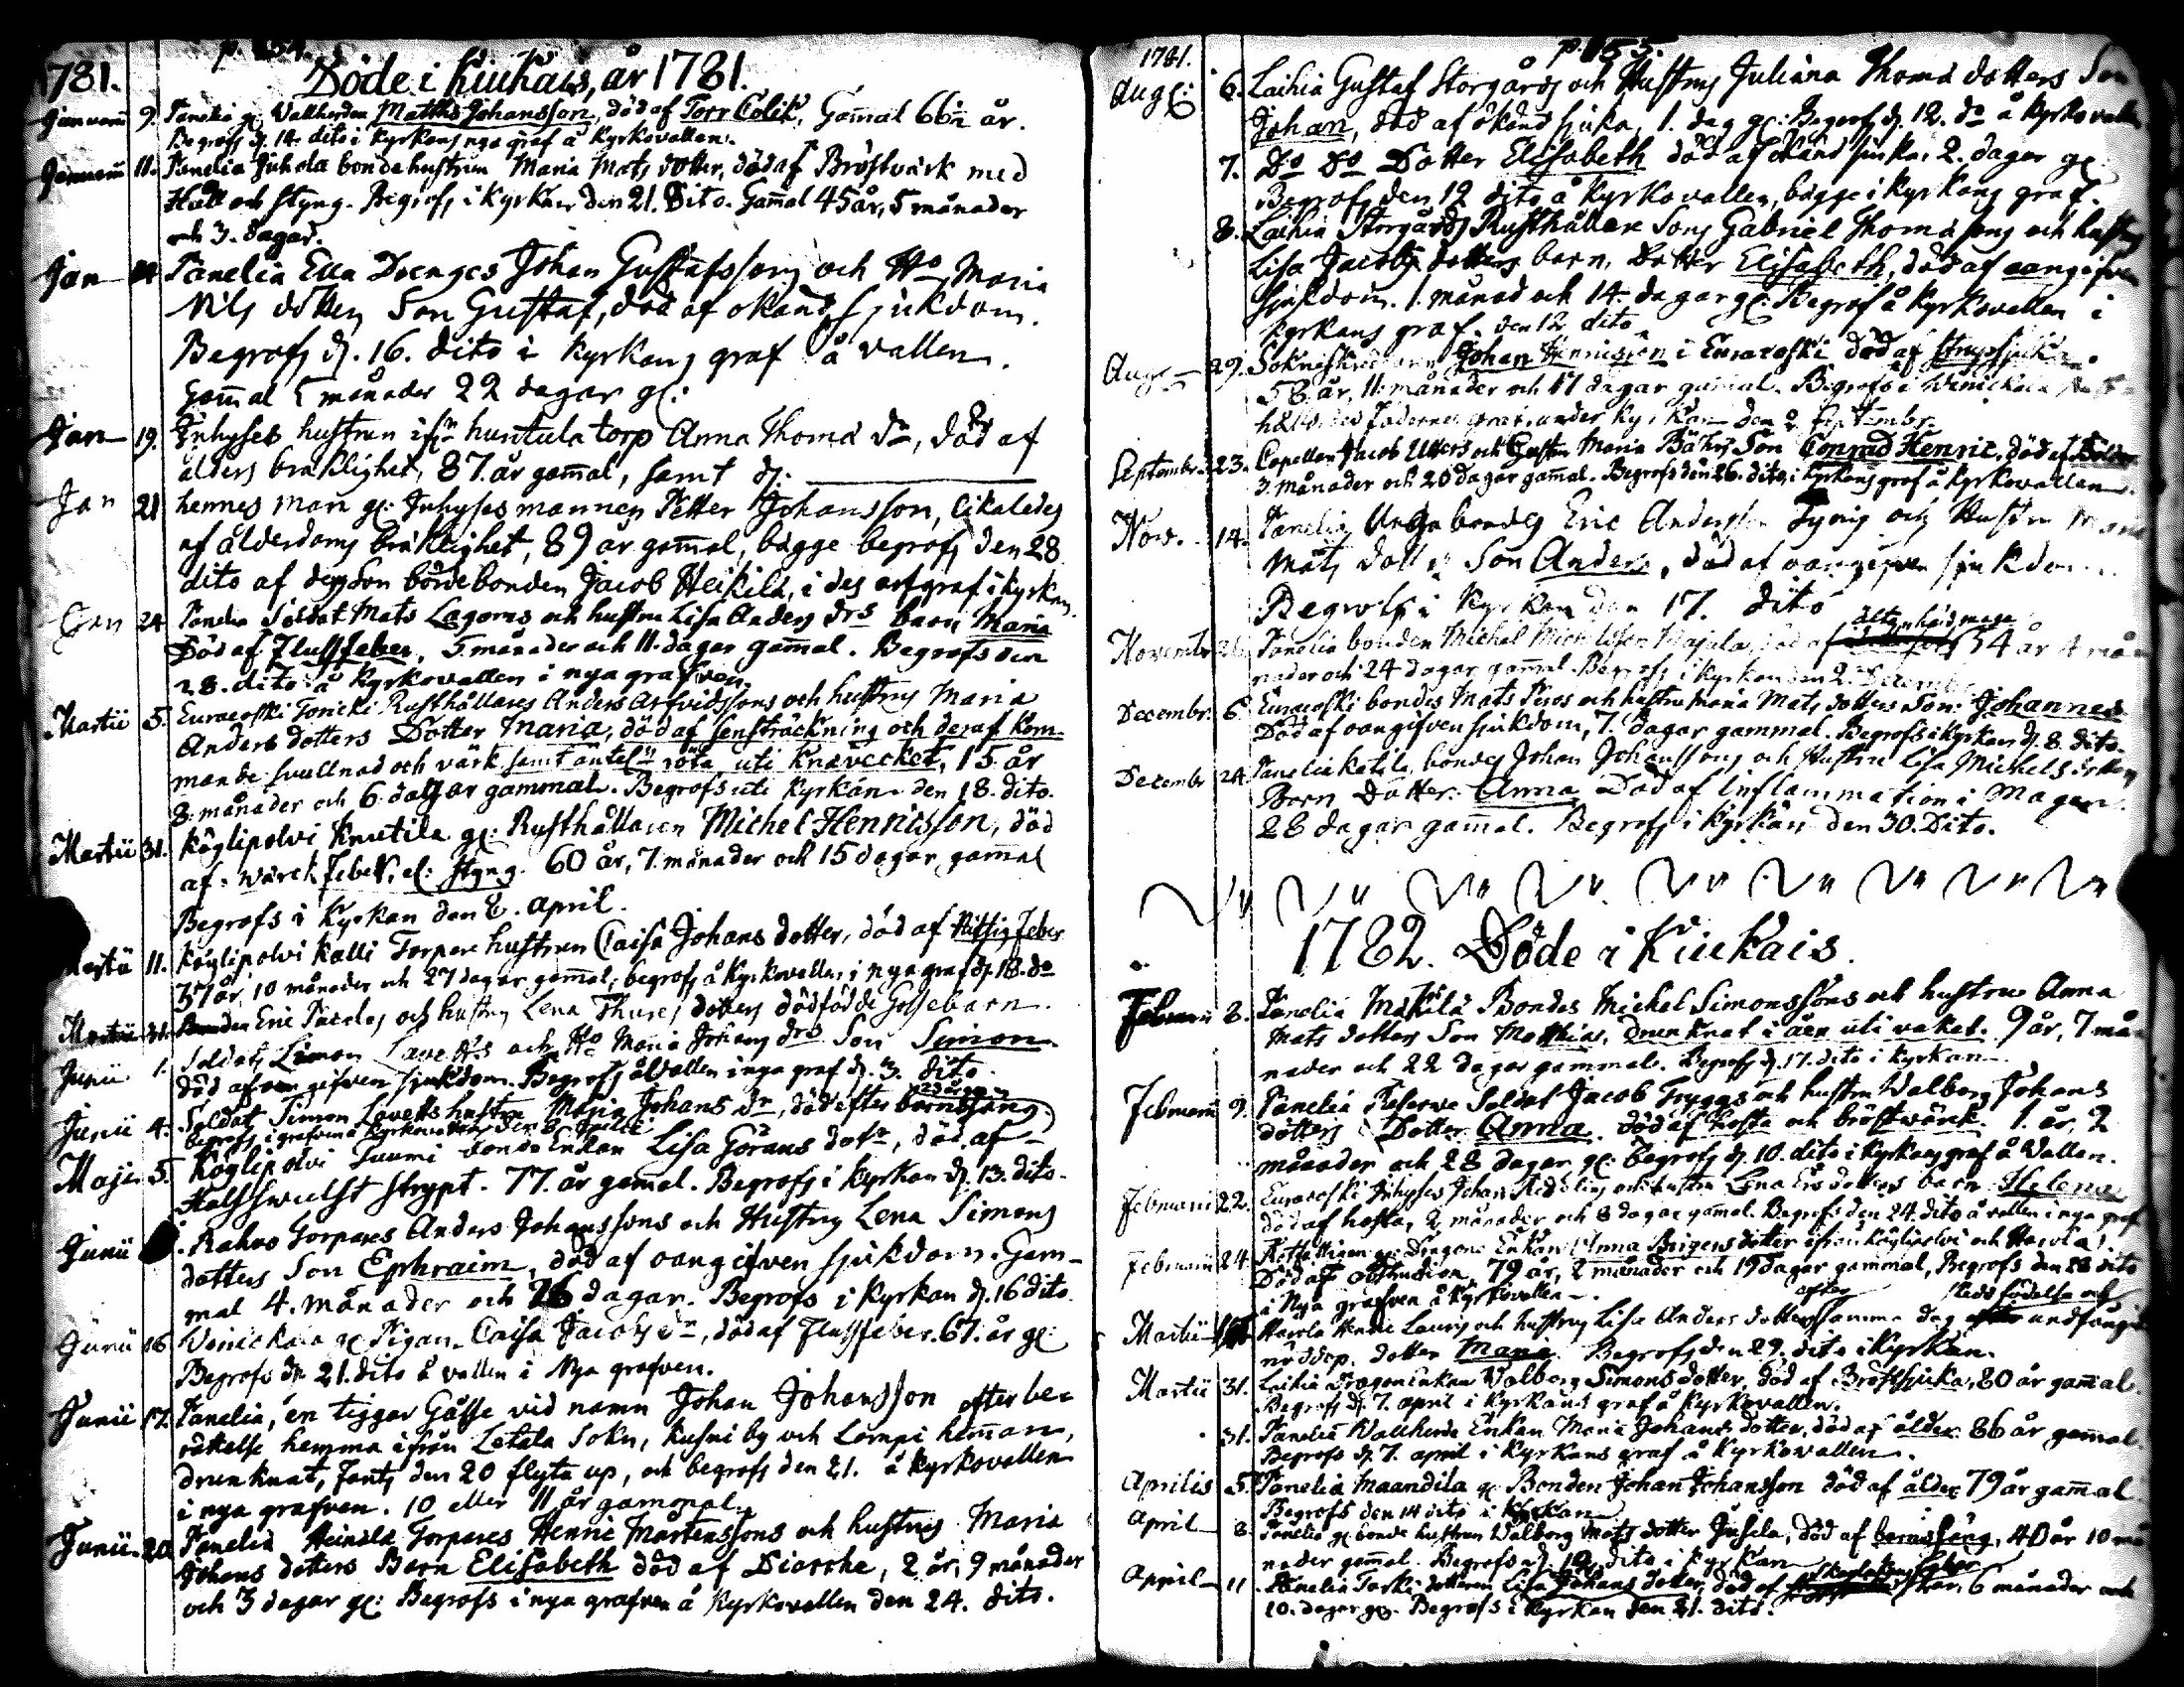 1781.
Döde i Kiukais, år 1781.
Januarii 9. Panelia gl. Vallherden Matths Johansson, död af Torr Colik, Gammal 66 år.
Begrofs d. 14. dito i Kyrkans nya graf å Kyrkovallen.
Januarii 11. Panelia Juhola bondehustrun Maria Mats dotter, död af Bröstvärk med
Håll och styng. Begrofs i Kyrkan den 21. Dito. Gammal 45 år, 5 månader
och 3. dagar.
Jan Panelia Eua Drenges Johan Gustafssons och Ho Maria
Nils dotters Son Gustaf, död af okänd sjukdom.
Begrofs d. 16. dito i Kyrkans graf å vallen.
Gammal 5 månader 22 dagar gl:
Jan 19. Inhyses hustrun ifrn huntula torp Anna Thomæ dr, död af
ålders bräklighet, 87. år gammal, samt d:
Jan 21 hennes man gl: Inhyses mannen Petter Johansson, likaledes
af ålderdoms bräklighet, 89 år gammal, bägge begrofs den 28
dito af dess Son börde bonden Jacob Heikilä, i des arfgraf i kyrkan
Jan 24 Panelia Soldat Mats Lagerus och hustru Lisa Anders drs barn Maria
Död af Flussfeber, 5. månader och 11. dagar gammal. Begrofs den
28. dito å Kyrkovallen i nya grafven.
Martii 5. Euraeoski Toricki Rusthållares Anders Arfvidssons och hustrus Maria
Anders dotters Dotter Maria, död af sensträckning och deraf kom-
mande svullnad och värk samt äntel. röta uti knävecket, 15 år
8. månader och 6. dagar gammal. Begrofs uti Kyrkan den 18. dito.
Martii 31. Köglipolvi Knutila gl: Rusthållaren Michel Henricsson, död
af Wärck feber, el: styng. 60 år, 7. månader och 15 dagar gammal
Begrofs i Kyrkan den 8. april.
Martii 11. Köglipolvi Kalli Torpare hustrun Caisa Johans dotter, död af Hitsig feber
37 år, 10 månader och 27 dagar gammal, begrofs å Kyrkovallen i nya graf d. 18. do
Martii 31. Bonden Eric och hustrus Lena Thures dotters dödfödde Gossebarn.
Junii 1. Soldats Simon Lavetts och Ho Maria Johans drs Son Simon
död af oangifven sjukdom. Begrofs å vallen i nya graf d. 3. dito.
Junii 4. Soldat Simon Lavetts hustru Maria Johans dr, död efter barnsäng.
Maji 5. Köglipolvi Tuumi bonde Enkan Lisa Görans dotr, död af
Halsswulst strypt. 77. år gammal. Begrofs i Kyrkan d. 13. dito.
Junii Rahvo Torpares Anders Johanssons och Hustrus Lena Simons
dotters Son Ephraim, död af oangifven sjukdom. Gam-
mal 4. månader och 26 dagar. Begrofs i Kyrkan d. 16 dito.
Junii 16 gl. Pigan Caisa Jacobs dr, död af Flussfeber. 67. år gl:
Begrofs dn 21. dito å vallen i Nya grafven.
Junii 17. Panelia, en tiggar Gåsse vid namn Johan Johansson efter be-
rättelse hemma ifrån Letala Sokn, Kusni by och Lempi hemman,
drunknat, fants den 20 flyta up, och begrofs den 21. å Kyrkovallen
i nya grafven. 10 eller 11 år gammal.
Junii 20 Panelia Heinola Torpares Henric Mårtenssons och hustrus Maria
Johans dotters Barn Elisabeth död af Diarrhe, 2 år, 9 månader
och 3 dagar gl: Begrofs i nya grafven å Kyrkovallen den 24. dito.
1781.
p. 153.
Aug: 6. Laihia Gustaf Storgårds och Hustrus Juliana Thomæ dotters Son
Johan, död af okänd sjuka, 1. dag gl: Begrofs d. 12. do å Kyrkovallen
7. Do Do Dotter Elisabeth död af okänd sjuka, 2. dagar gl.
Begrofs den 12 dito å Kyrkovallen, bägge i Kyrkans graf.
8. Laihia Storgårds Rusthållare Sons Gabriel Thomæ sons och hustrus
Lisa Jacobs dotters barn, Dotter Elisabeth, död af oangifven
sjukdom. 1. månad och 14. dagar gl: Begrof å Kyrkovallen i
Kyrkans graf. den 12 dito
Aug. 29. Johan Henricsson i Euraeoski död af strupsjuka.
58. år, 11. månader och 17 dagar gammal. Begrofs i
graf under Kyrkan den 2 September.
Septembr. 23. Capellan Jacob Utters och Hustru Maria Bähr Son Conrad Henric, död af
3. månader och 20 dagar gammal. Begrofs den 26. dito, i Kyrkans graf å Kyrkovallen.
Nov. 14. Panelia bondes Eric Andersson och Hustru Maria
Mats dotters Son Anders, död af oangifven sjukdom
Begrofs i Kyrkan den 17. dito
Novembr Panelia bonden Michel 54 år 4 må-
nader och 24 dagar gammal. Begrofs i Kyrkan den 2. Decemb.
Decembr. 6. Euraeoski bondes Mats Piros och hustru Maria Mats dotters Son Johannes
Död af oangifven sjukdom, 7. dagar gammal. Begrofs i Kyrkan d. 8. dito.
Decembr 24. Panelia Katila bondes Johan Johanssons och Hustru Lisa Michels dotters
Barn Dotter Anna Död af Inflammation i Magen.
28 dagar gammal. Begrofs i Kyrkan den 30. Dito.
1782. Döde i Kiukais.
Februarii 8. Panelia Mäkilä Bondes Michel Simonssons och hustrus Anna
Mats dotters Son Matthias, drunknat i åen uti vaket. 9 år, 7 må-
nader och 22 dagar gammal. Begrofs d. 17. dito i Kyrkan.
Februarii 9. Panelia Reserve Soldat Jacob Tryggs och hustru Walborg Johans
dotters Dotter Anna. död af hosta och bröstvärck. 1. år, 2
månader och 28 dagar gl: begrofs d. 10. dito i Kyrkans graf å Vallen.
Februarii 22. Euraeoski Inhyses Johan och hustru Lena Ers dotters barn Helena
död af hosta, 2 månader och 8 dagar gammal. Begrofs den 24. dito å vallen i nya graf
Februarii 24. Enkan Anna Birgers dotter ifrån Köglipolvi och
Död af obstruction, 79 år, 2 månader och 19 dagar gammal, Begrofs den 28 dito
i Nya grafven å Kyrkovallen.
Martii Henric Lauris och hustrus Lisa Anders dotters samma dag efter undfången
nöddop, dotter Maria. Begrofs den 29. dito i Kyrkan.
Martii 31. Laihia Dragon enkan Valborg Simons dotter, död af Bröstsjuka, 80 år gammal.
Begrofs d. 7. april i Kyrkans graf å Kyrkovallen.
31. Panelia Vallherde Enkan Maria Johans dotter, död af ålder. 86 år gammal.
Begrofs d. 7. april i Kyrkans graf å Kyrkovallen.
Aprilis 5. Panelia Maandila gl: Bonden Johan Johansson död af ålder 79 år gammal
Begrofs den 14 dito i Kyrkan
April 8. Panelia gl bonde hustrun Walborg Mats dotter Juhola, död af barnsäng, 40 år 10 må-
nader gammal. Begrofs d. dito i Kyrkan
April 11. Panelia Torki dottren Lisa Johans dotter, död af 6 månader och
10. dagar gl. Begrofs i Kyrkan den 21. dito.